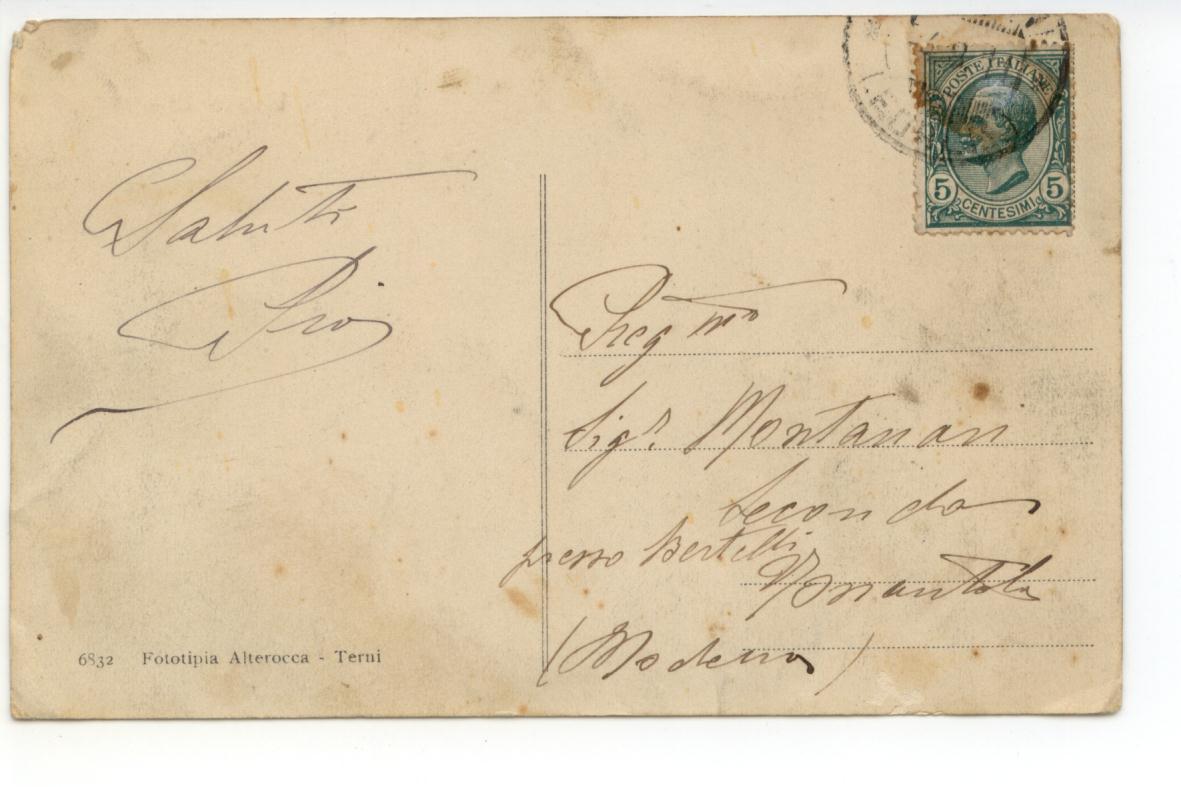 Saluti
Pio
6832 Fototipia Alterocca - Terni
POSTE ITALIANE
5 CENTESIMI 5
Preg mo
Sigr. Montanari
Secondo
presso Bertelli
Nonantola
(Modena)